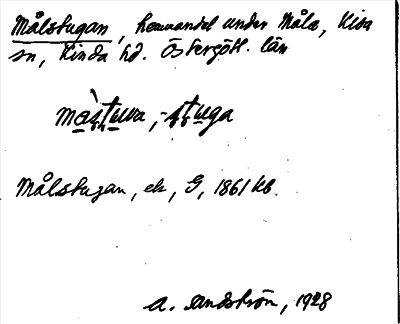 Målstugan, hemmandel under Måla, Kisa
sn, Kinda hd. Östergötl. län
màstuva, -stuga
Målstugan, ek, G, 1861 kb.
A. Landström, 1928